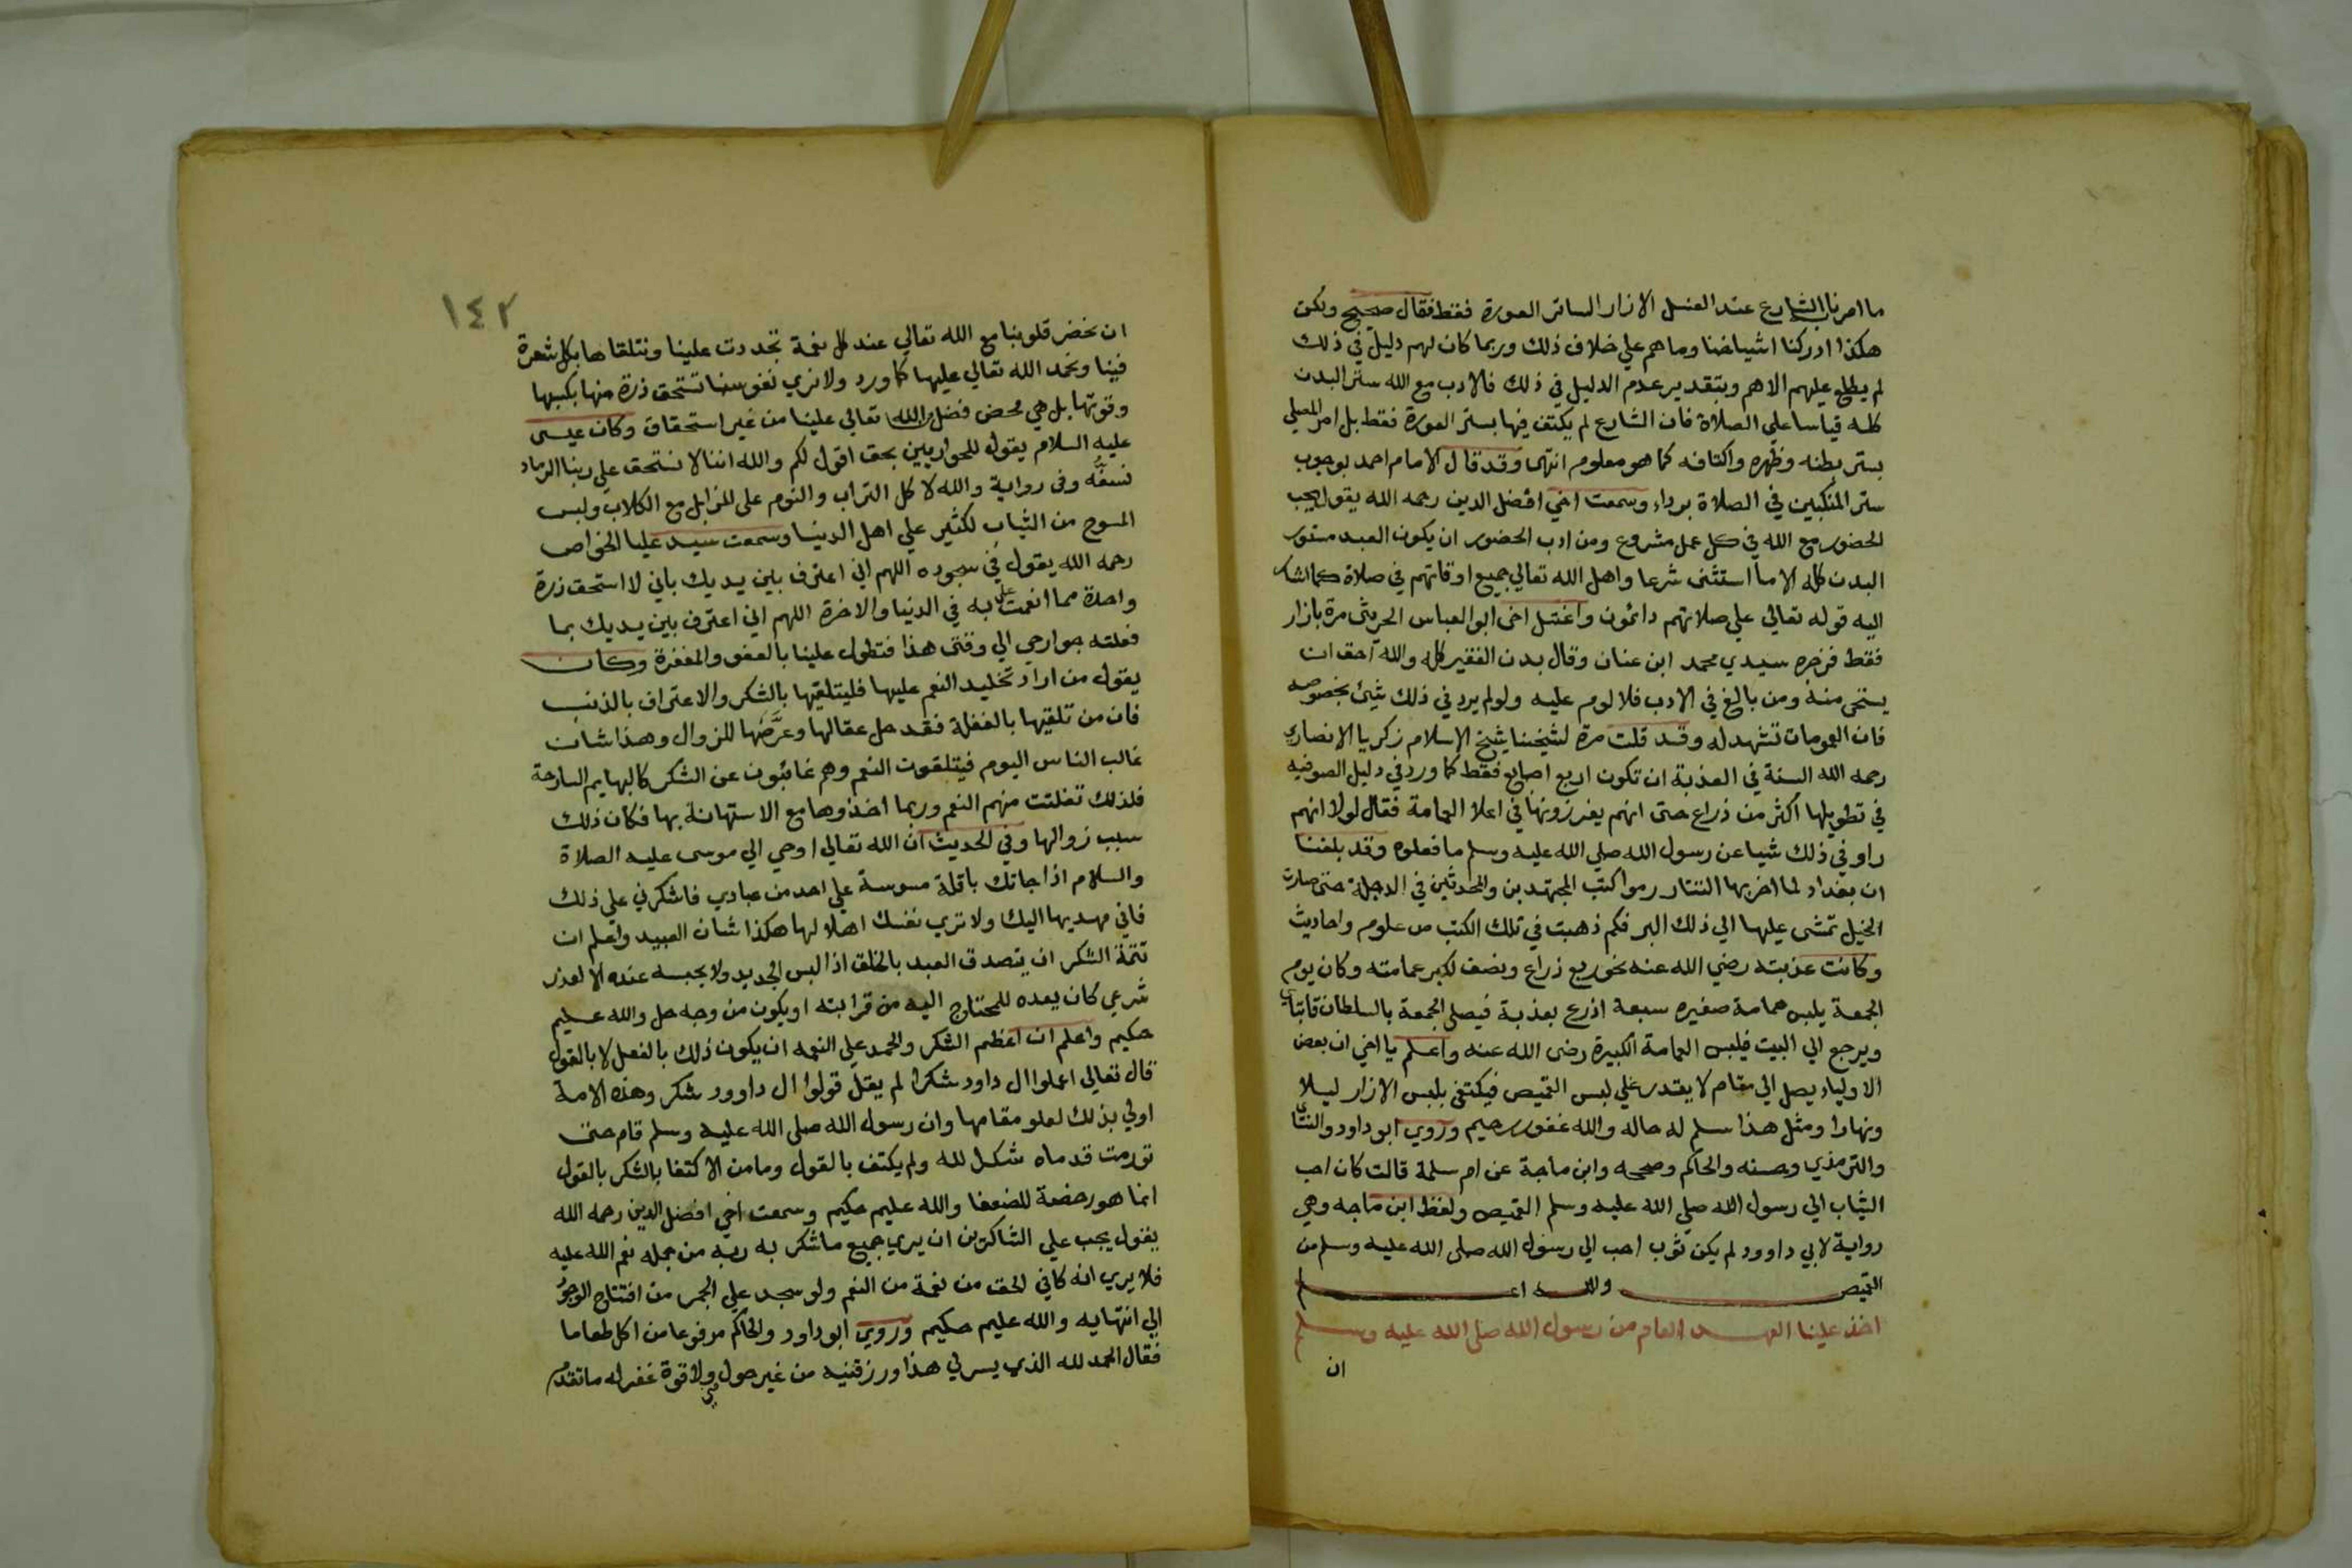 ما امرنا الشارع عند الغسل الا زار الساتر العورة فقط فقال صحيح ولكن
هكذا ادركنا اشياخنا وما هم علي خلاف ذلك وربما كان لهم دليل في ذلك
لم يطلع عليهم الا هم وبتقدير عدم الدليل في ذلك فالادب مع الله ستر البدن
كله قياسا علي الصلاة فان الشارع لم يكتف فيها بستر العورة فقط بل امر المصلي
بستر بطنه وظهره واكتافه كما هو معلوم انتهى وقد قال الامام احمد بوجوب
ستر المنكبين في الصلاة برداء وسمعت اخي افضل الدين رحمه الله يقول يجب
الحضور مع الله في كل عمل مشروع ومن ادب الحضور ان يكون العبد مستور
البدن كله الا ما استثنى شرعا واهل الله تعالي جميع اوقاتهم في صلاة كما اشار
اليه قوله تعالي علي صلاتهم دائمون واغتسل اخى ابو العباس الحريثى مرة بازار
فقط فزجره سيدي محمد ابن عنان وقال بدن الفقير كله والله احق ان
يستحى منه ومن بالغ في الادب فلا لوم عليه ولو لم يرد في ذلك شيئ بخصوصه
فان العمومات تشهد له وقد قلت مرة لشيخنا شيخ الاسلام زكريا الانصاري
رحمه الله السنة في العذبة ان تكون اربع اصابع فقط كما ورد في دليل الصوفيه
في تطويلها اكثر من ذراع حتى انهم يغرزونها في اعلا العمامة فقال لولا انهم
راو في ذلك شيا عن رسول الله صلي الله عليه وسلم ما فعلوه وقد بلغنا
ان بغداد لما اخربها التتار رموا كتب المجتهدين والمحدثين في الدجلة حتى صارت
الخيل تمشى عليها الي ذلك البر فكم ذهبت في تلك الكتب من علوم واحاديث
وكانت عذبته رضي الله عنه نحو ربع ذراع ونصف لكبر عمامته وكان يوم
الجمعة يلبس عمامة صغيره سبعة اذرع بعذبة فيصلي الجمعة بالسلطان قايتباي
ويرجع الي البيت فيلبس العمامة الكبيرة رضى الله عنه واعلم يا اخي ان بعض
الاولياء يصل الي مقام لا يقدر علي لبس القميص فيكتفي بلبس الازار ليلا
ونهارا ومثل هذا سلم له حاله والله غفور رحيم وروي ابو داود والنسائي
والترمذي وحسنه والحاكم وصححه وابن ماجة عن ام سلمة قالت كان احب
الثياب الي رسول الله صلي الله عليه وسلم القميص ولفظ ابن ماجه وهي
رواية لابي داوود لم يكن ثوب احب الي رسول الله صلى الله عليه وسلم من
القميص والله اعلم
اخذ علينا العهد العام من رسول الله صلى الله عليه وسلم
ان
١٤٢
ان نحضر قلوبنا مع الله تعالي عند كل نعمة تجددت علينا ونتلقاها بكل شعرة
فينا ونحمد الله تعالي عليها كما ورد ولا نري نفوسنا تستحق ذرة منها بكسبها
وقوتها بل هي محض فضل الله تعالي علينا من غير استحقاق وكان عيسى
عليه السلام يقول للحواريين بحق اقول لكم والله اننا لا نستحق علي ربنا الرماد
نسفُّه وفى رواية والله لاكل التراب والنوم على المزابل مع الكلاب ولبس
المسوح من الثياب لكثير علي اهل الدنيا وسمعت سيد عليا الخواص
رحمه الله يقول في سجوده اللهم اني اعترف بين يديك باني لا استحق ذرة
واحدة مما انعمت علي به في الدنيا والاخرة اللهم اني اعترف بين يديك بما
فعلته جوارحي الي وقتى هذا فتطول علينا بالعفو والمغفرة وكان
يقول من اراد تخليد النعم عليها فليتلقيها بالشكر والاعتراف بالذنب
فان من تلقيها بالغفلة فقد حل عقالها وعرَّضها للزوال وهذا شان
غالب الناس اليوم فيتلقون النعم وهم غائبون عن الشكر كالبهايم السارحة
فلذلك تفلتت منهم النعم وربما اخذوها مع الاستهانة بها فكان ذلك
سبب زوالها وفي الحديث ان الله تعالي اوحي الي موسى عليه الصلاة
والسلام اذا جاتك باقلة مسوسة علي احد من عبادي فاشكرني علي ذلك
فاني مهديها اليك ولا تري نفسك اهلا لها هكذا شان العبيد واعلم ان
تتمة الشكر ان يتصدق العبد بالخلق اذا لبس الجديد ولا يحبسه عنده الا لعذر
شرعي كان يعده للمحتاج اليه من قرابته او يكون من وجه حل والله عليم
حكيم واعلم ان اعظم الشكر والحمد علي النعمه ان يكون ذلك بالفعل لا بالقول
قال تعالي اعملوا ال داود شكرا لم يقل قولوا ال داوود شكر وهذه الامة
اولي بذلك لعلو مقامها وان رسول الله صلى الله عليه وسلم قام حتى
تورمت قدماه شكرا لله ولم يكتف بالقول وما من الاكتفا بالشكر بالقول
انما هو رخصة للضعفا والله عليم حكيم وسمعت اخي افضل الدين رحمه الله
يقول يجب علي الشاكرين ان يري جميع ما شكر به ربه من جمله نعم الله عليه
فلا يري انه كافي الحق من نعمة من النعم ولو سجد علي الجمر من افتتاح الوجود
الي انتهايه والله عليم حكيم وروي ابو داود والحاكم مرفوعا من اكل طعاما
فقال الحمد لله الذي يسر لي هذا ورزقنيه من غير حول مني ولا قوة غفر له ما تقدم